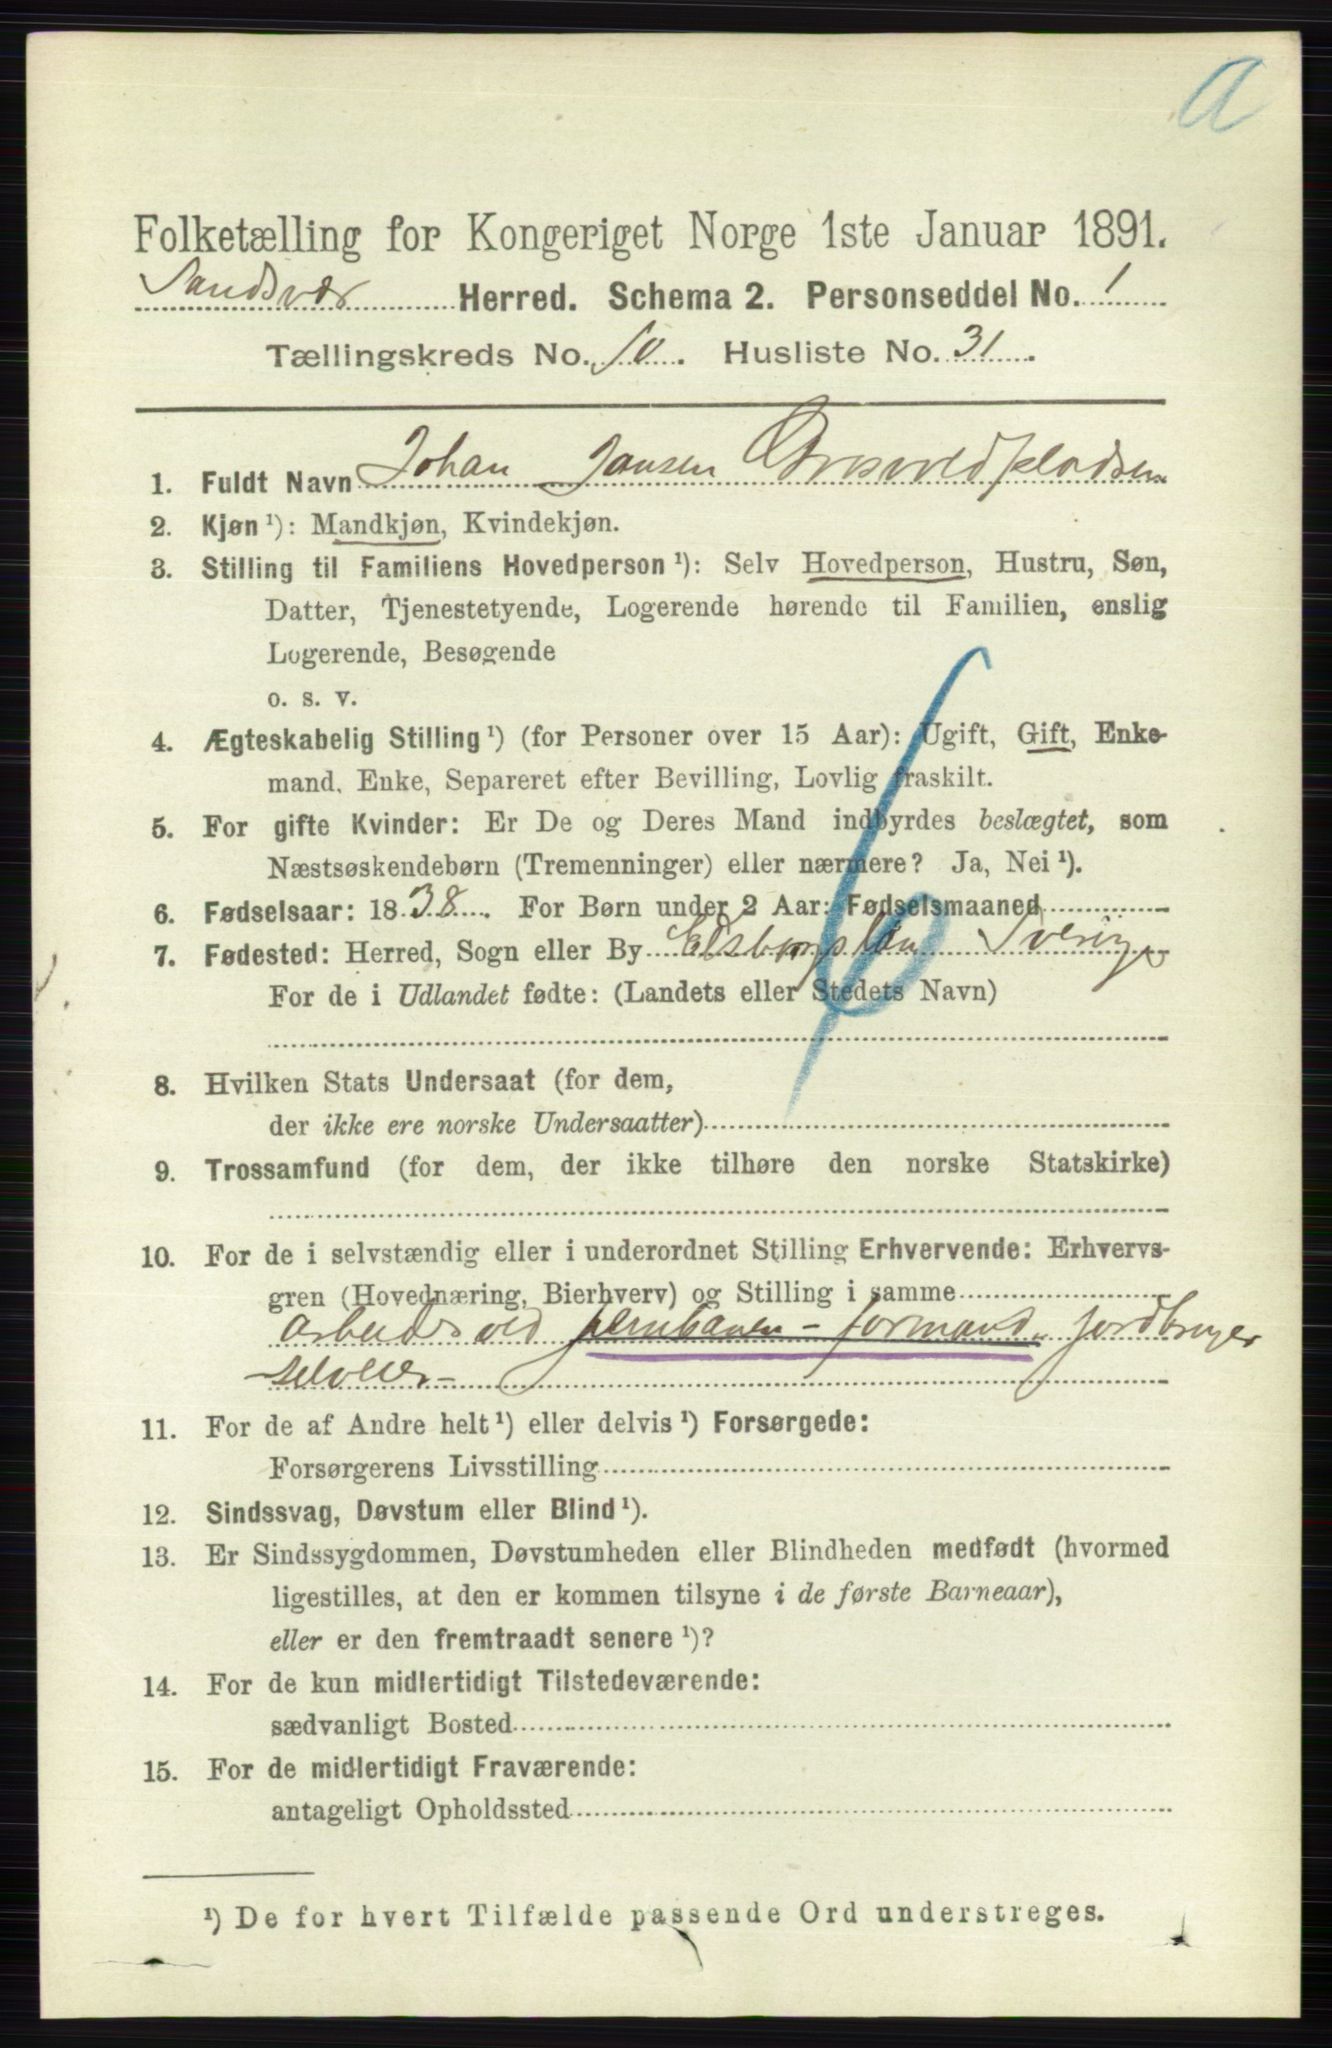 a
Folketælling for Kongeriget Norge 1ste Januar 1891.
Sandsvær Herred. Schema 2. Personseddel No. 1
Tællingskreds No. 10. Husliste No. 31.
1. Fuldt Navn Johan Jansen
2. Kjøn ¹): Mandkjøn, Kvindekjøn.
3. Stilling til Familiens Hovedperson ¹): Selv Hovedperson, Hustru, Søn,
Datter, Tjenestetyende, Logerende hørende til Familien, enslig
Logerende, Besøgende
o. s. v.
4. Ægteskabelig Stilling ¹) (for Personer over 15 Aar): Ugift, Gift, Enke-
mand, Enke, Separeret efter Bevilling, Lovlig fraskilt.
5. For gifte Kvinder: Er De og Deres Mand indbyrdes beslægtet, som
Næstsøskendebørn (Tremenninger) eller nærmere? Ja, Nei ¹).
6. Fødselsaar: 1838. For Børn under 2 Aar: Fødselsmaaned
7. Fødested: Herred, Sogn eller By Elsborgslän Sverige
For de i Udlandet fødte: (Landets eller Stedets Navn)
8. Hvilken Stats Undersaat (for dem,
der ikke ere norske Undersaatter)
9. Trossamfund (for dem, der ikke tilhøre den norske Statskirke)
10. For de i selvstændig eller i underordnet Stilling Erhvervende: Erhvervs-
gren (Hovednæring, Bierhverv) og Stilling i samme
Arbeids ved jernbanen - formand jordbruger
- selveier -
11. For de af Andre helt ¹) eller delvis ¹) Forsørgede:
Forsørgerens Livsstilling
12. Sindssvag, Døvstum eller Blind ¹).
13. Er Sindssygdommen, Døvstumheden eller Blindheden medfødt (hvormed
ligestilles, at den er kommen tilsyne i de første Barneaar),
eller er den fremtraadt senere ¹)?
14. For de kun midlertidigt Tilstedeværende:
sædvanligt Bosted
15. For de midlertidigt Fraværende:
antageligt Opholdssted
¹) De for hvert Tilfælde passende Ord understreges.